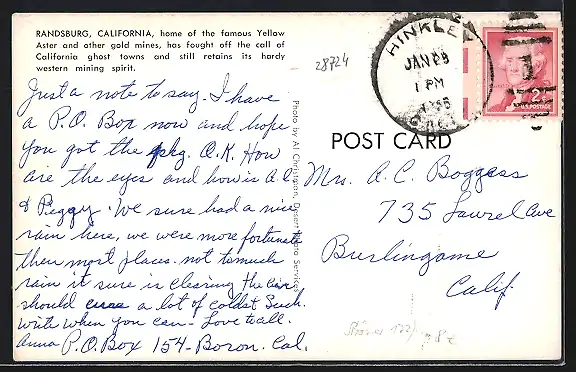 RANDSBURG, CALIFORNIA, home of the famous Yellow
Aster and other gold mines, has fought off the call of
California ghost towns and still retains its hardy
western mining spirit.
28724
HINKLEY
JAN 29
1 PM
CALIF
2¢
U.S. POSTAGE
POST CARD
Just a note to say. I have
a P.O. Box now and hope
you got the pkg. O.K. How
are the eyes and how is A.C.
& Peggy. We sure had a nice
rain here, we were more fortunate
then most places. not to much
rain it sure is clearing the air
should a lot of colds. Such
write when you can - Love to all.
Anna P.O. Box 154 - Boron. Cal.
Photo by Al Christigan, Desert Photo Services
Mrs. A.C. Boggess
735 Laurel Ave
Burlingame
Calif